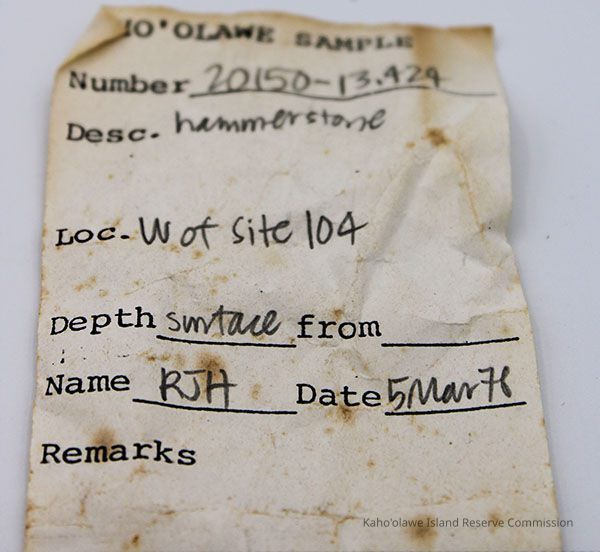 HO'OLAWE SAMPLE
Number 20150-13.424
Desc. hammerstone
Loc. W of site 104
Depth surface from
Name RJH Date 5Mar78
Remarks
Kaho'olawe Island Reserve Commission